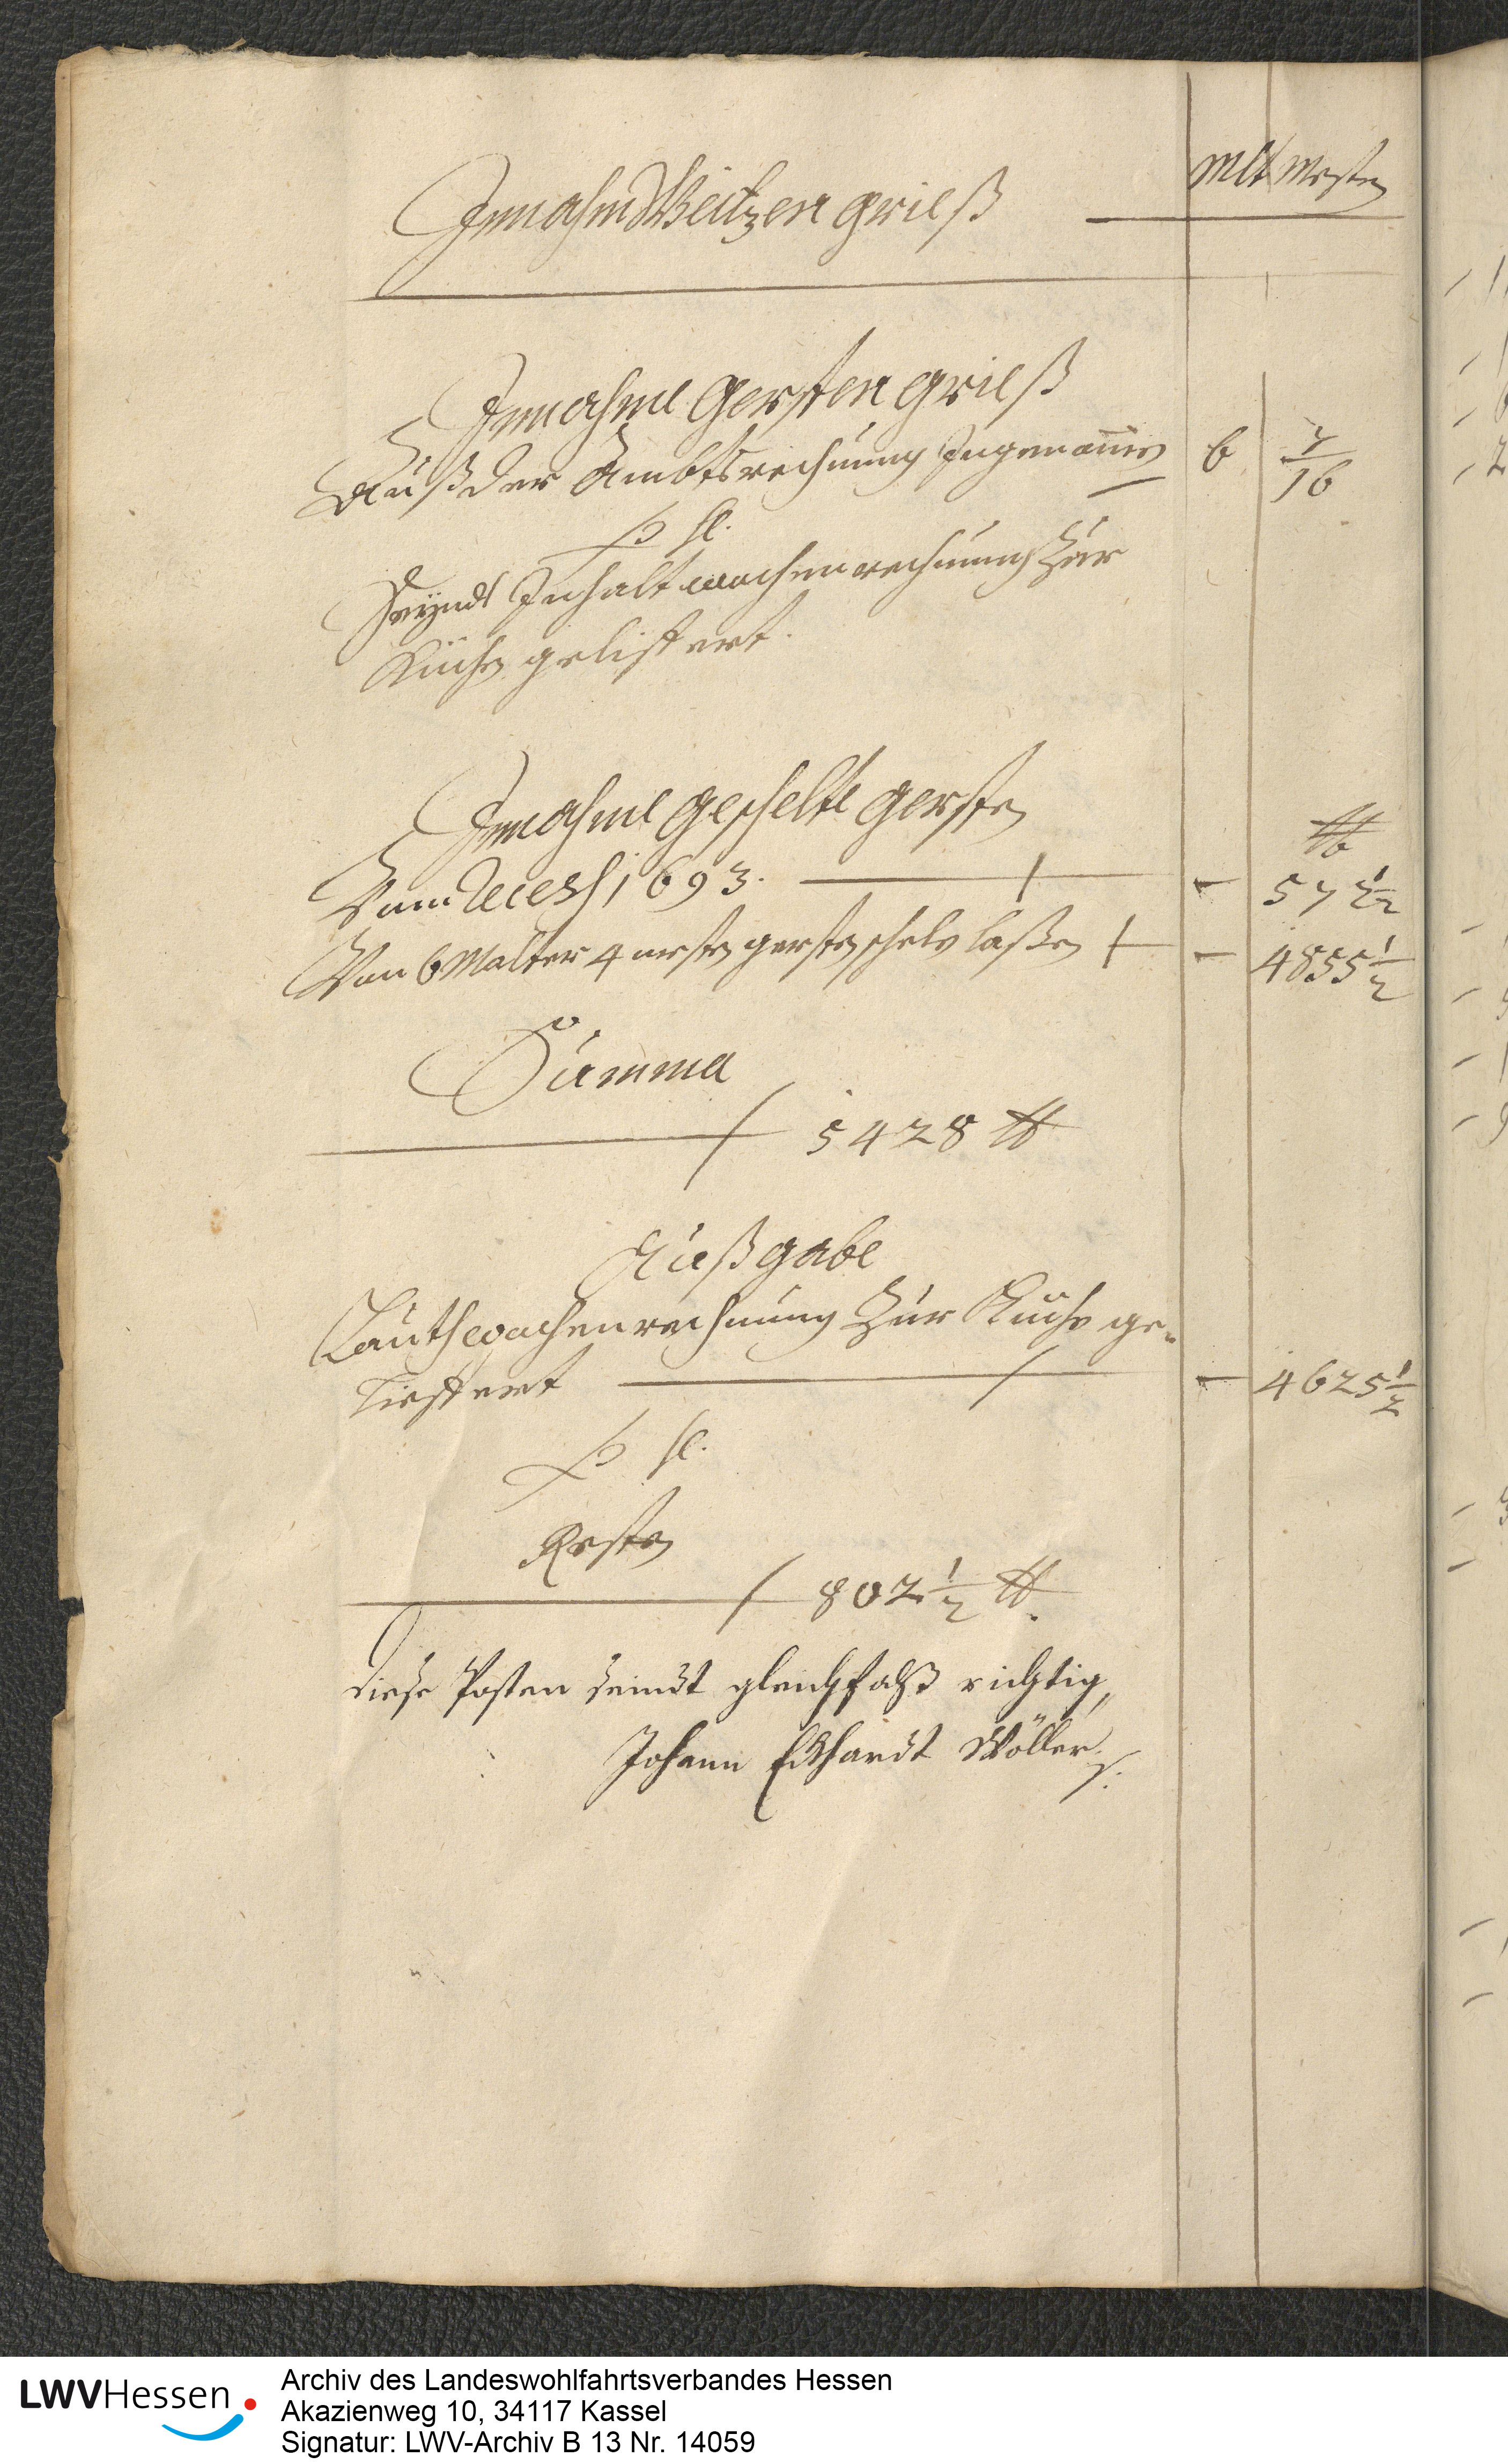 mlt mesten
Innahm Weitzen grieß
Innahme gersten grieß
Auß der Ambtsrechnung Ingenommen 6 7/16
p se.
Seyndt Inhalt wochenrechnung Zur
Küchen gelifert.
Innahme geschelte gersten
℔
Vom Recess 1693. - 572 1/2
Von 6 Malter 4 mesten gersten schelen laßen - 4855 1/2
Summa
5428 ℔
Außgabe
Lauth wochenrechnung Zur Küche ge-
lieffert - 4625 1/2
p se.
Resten
802 1/2 ℔.
diese Posten seindt gleichfalß richtig,
Johann Eckhardt Möller
LWVHessen
Archiv des Landeswohlfahrtsverbandes Hessen
Akazienweg 10, 34117 Kassel
Signatur: LWV-Archiv B 13 Nr. 14059